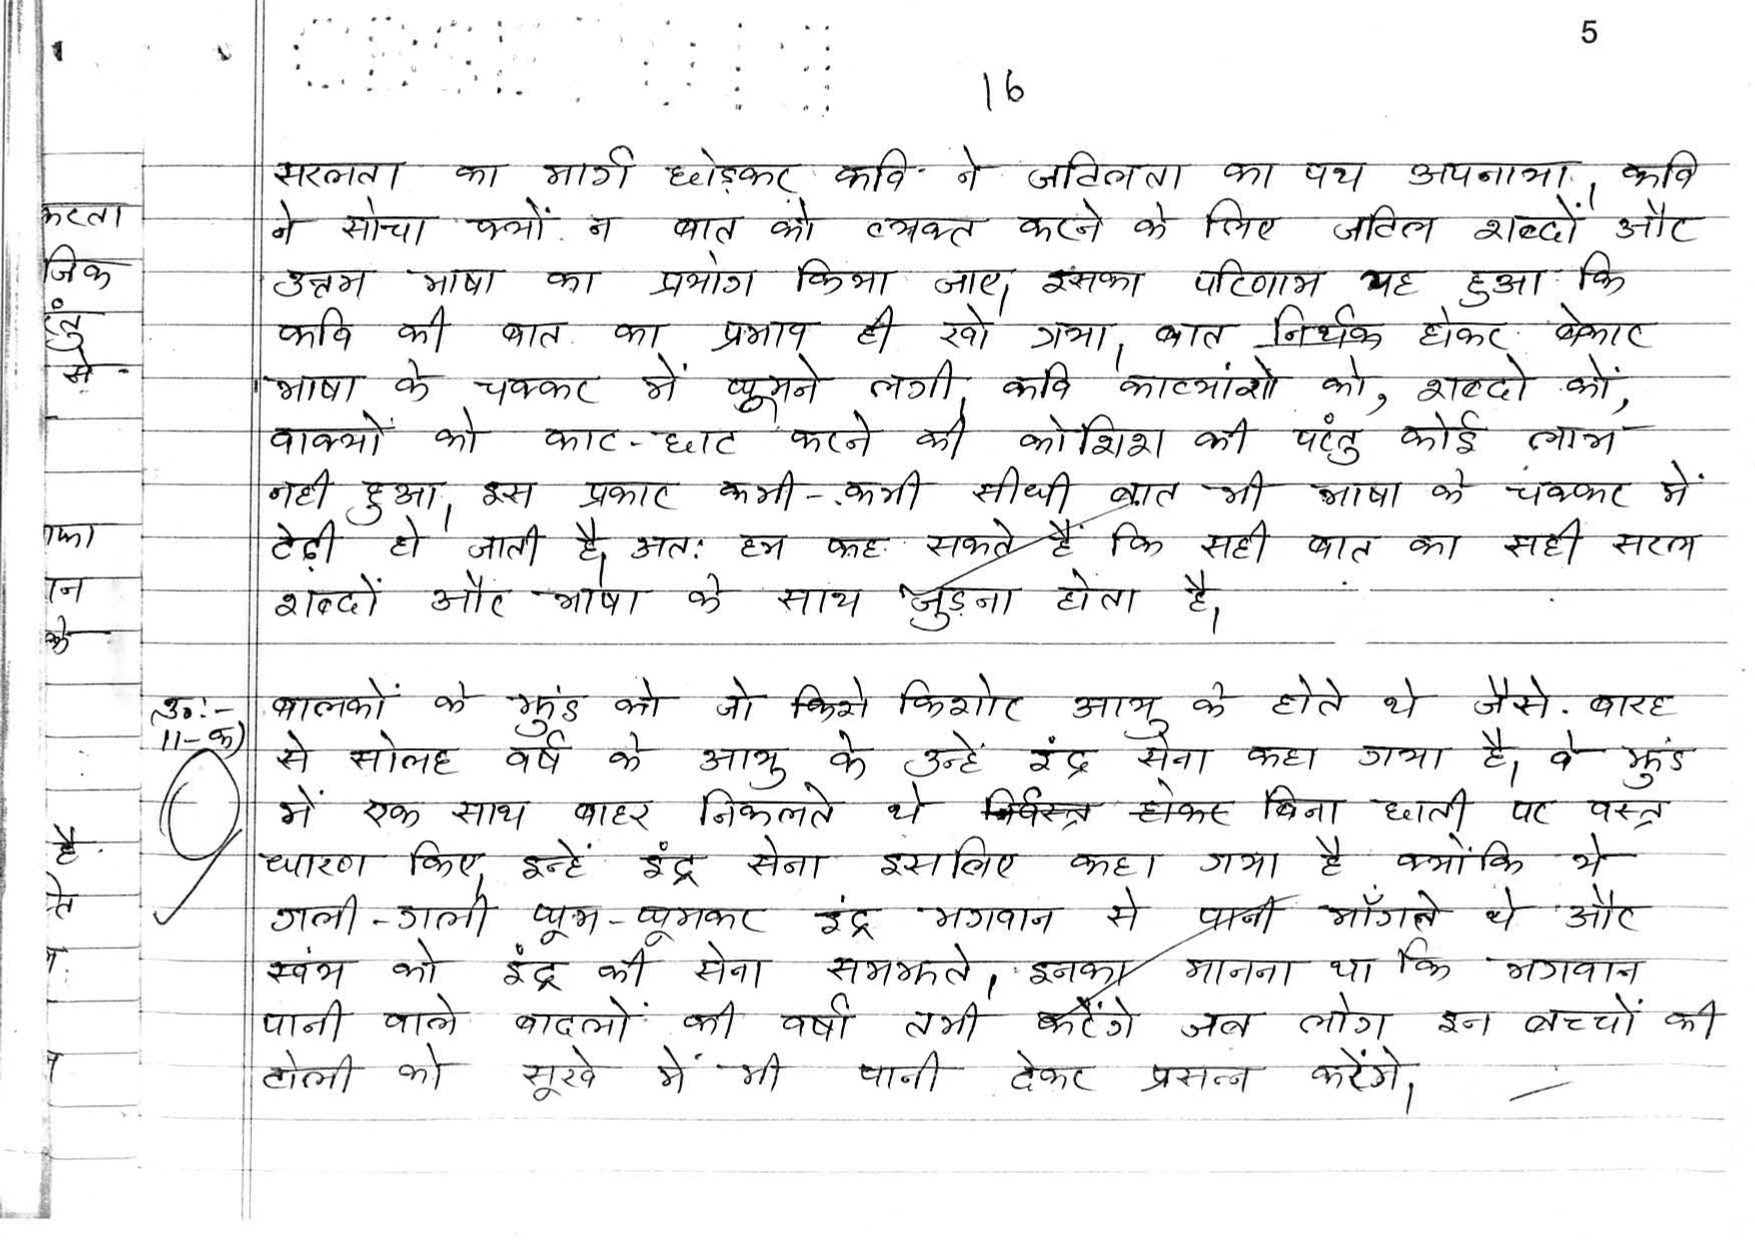 5
16
सरलता का मार्ग छोड़कर कवि ने जटिलता का पथ अपनाया। कवि
ने सोचा क्यों न बात को व्यक्त करने के लिए जटिल शब्दों और
उत्तम भाषा का प्रयोग किया जाए। इसका परिणाम यह हुआ कि
कवि की बात का प्रभाव ही खो गया। बात निर्थक होकर बेकार
भाषा के चक्कर में घूमने लगी। कवि काव्यांशो को, शब्दो कों,
वाक्यों को काट-छाट करने की कोशिश की परंतु कोई लाभ
नही हुआ। इस प्रकार कभी-कभी सीधी बात भी भाषा के चक्कर में
टेढ़ी हो जाती है। अतः हम कह सकते हैं कि सही बात का सही सरल
शब्दों और भाषा के साथ जुड़ना होता है।
उ०:-
11-क)
बालकों के झुंड को जो किशोर आयु के होते थे जैसे बारह
से सोलह वर्ष के आयु के उन्हें इंद्र सेना कहा गया है। वे झुंड
में एक साथ बाहर निकलते थे निर्वस्त्र होकर बिना छाती पर वस्त्र
धारण किए। इन्हें इंद्र सेना इसलिए कहा गया है क्योंकि ये
गली-गली घूम-घूमकर इंद्र भगवान से पानी माँगते थे और
स्वंय को इंद्र की सेना समझते। इनका मानना था कि भगवान
पानी वाले बादलों की वर्षा तभी करेंगे जब लोग इन बच्चों की
टोली को सूखे में भी पानी देकर प्रसन्न करेंगे।
करता
जिक
से
का
ान
के
है